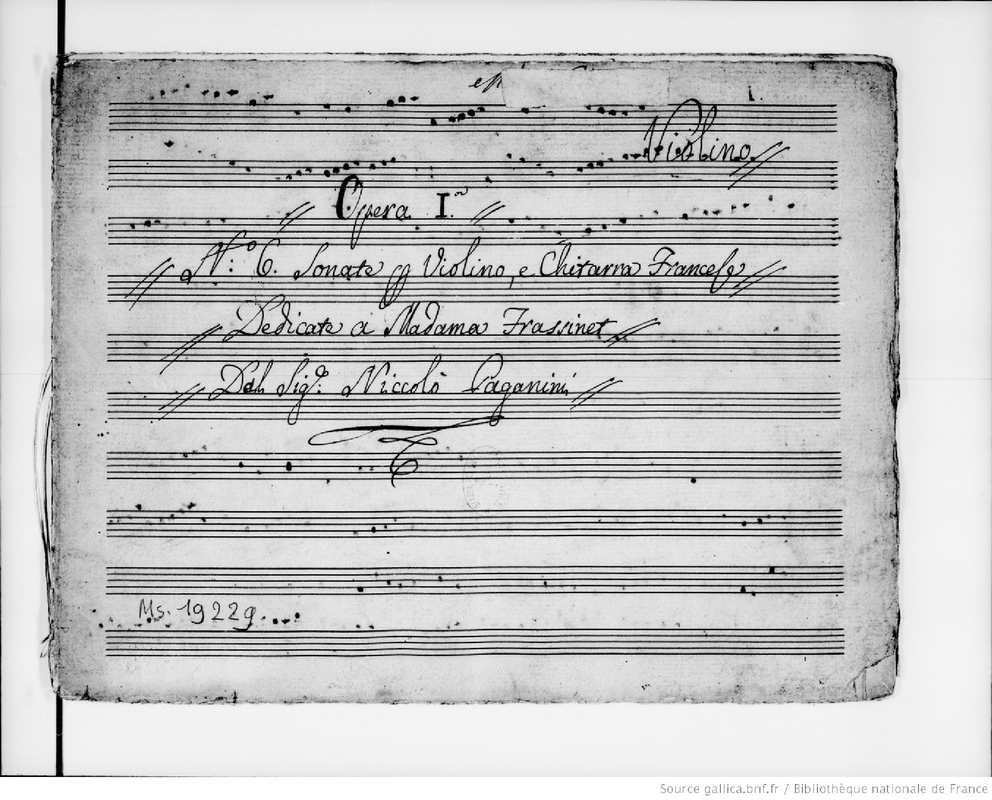 1.
Violino
Opera I.ª
N.º 6. Sonate p Violino, e Chitarra Francese
Dedicate a Madama Frassinet
Dal Sig.e Niccolò Paganini
Ms. 19229.
Source gallica.bnf.fr / Bibliothèque nationale de France